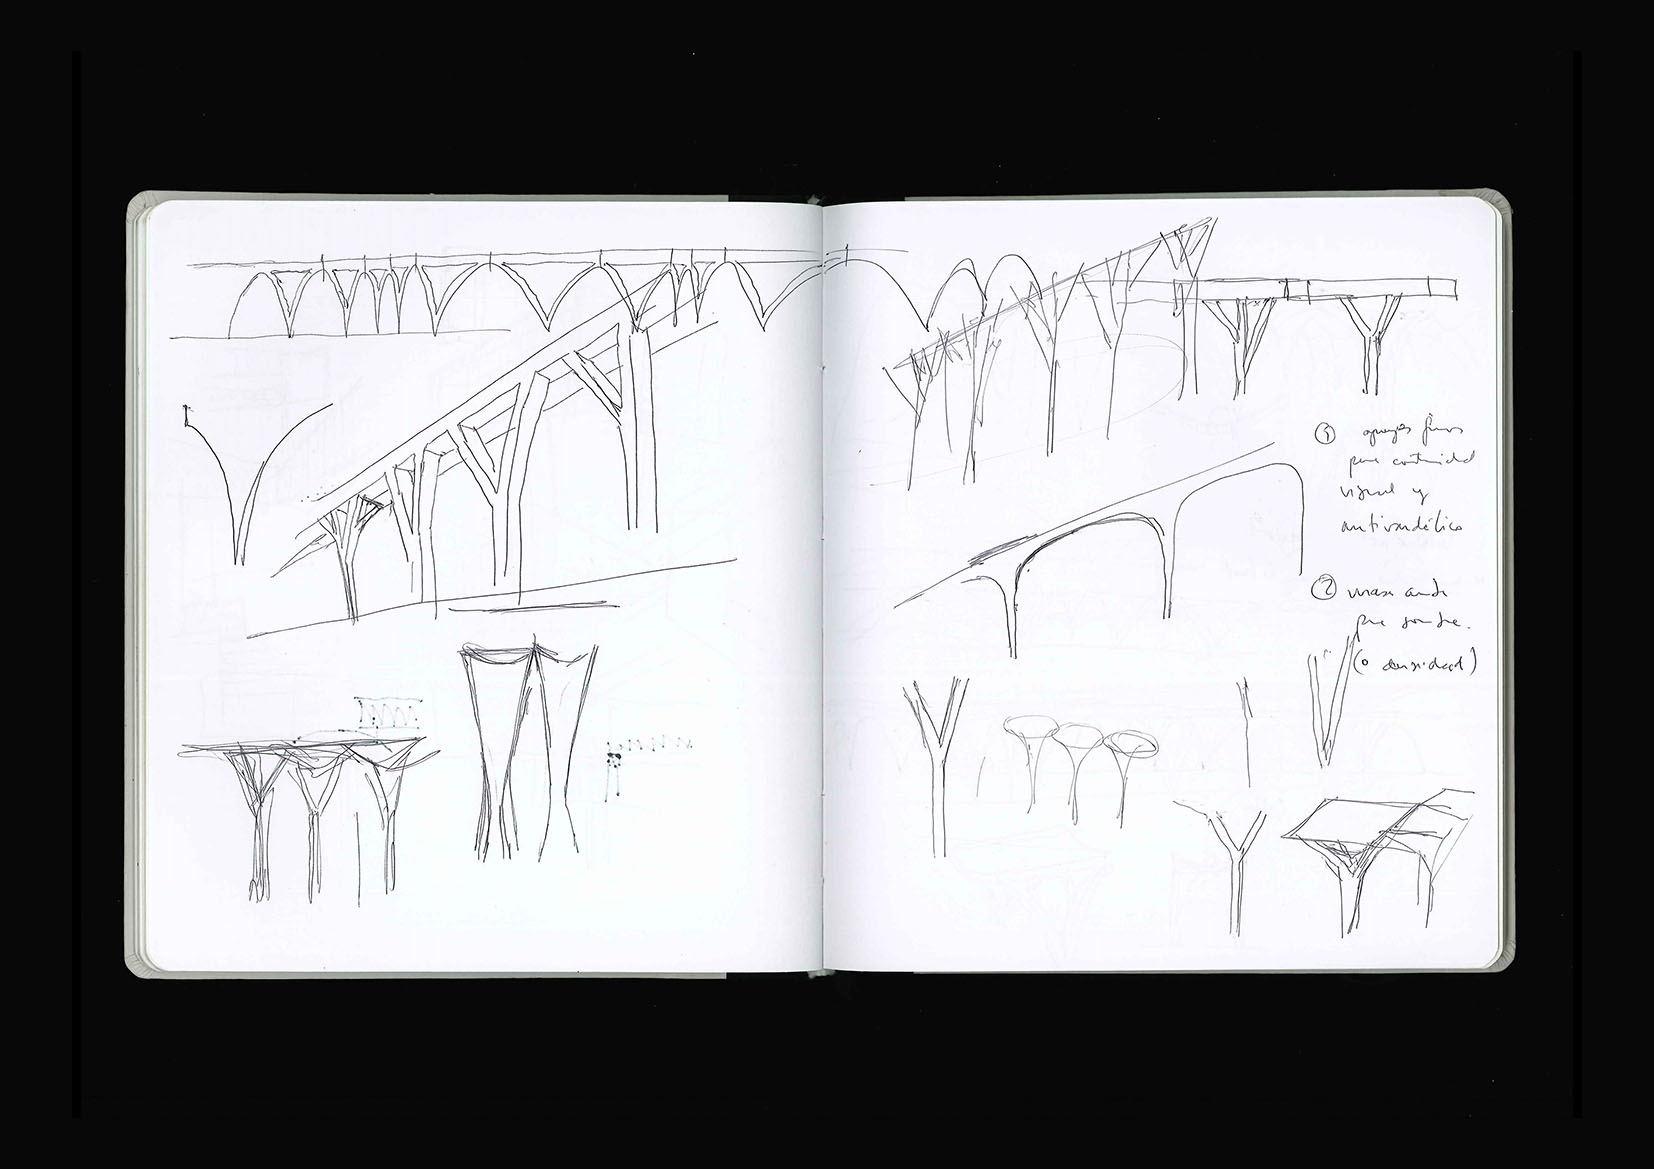 ① apoyos finos
para continuidad
visual y
antivandálico
② 
para sombra.
(o densidad)